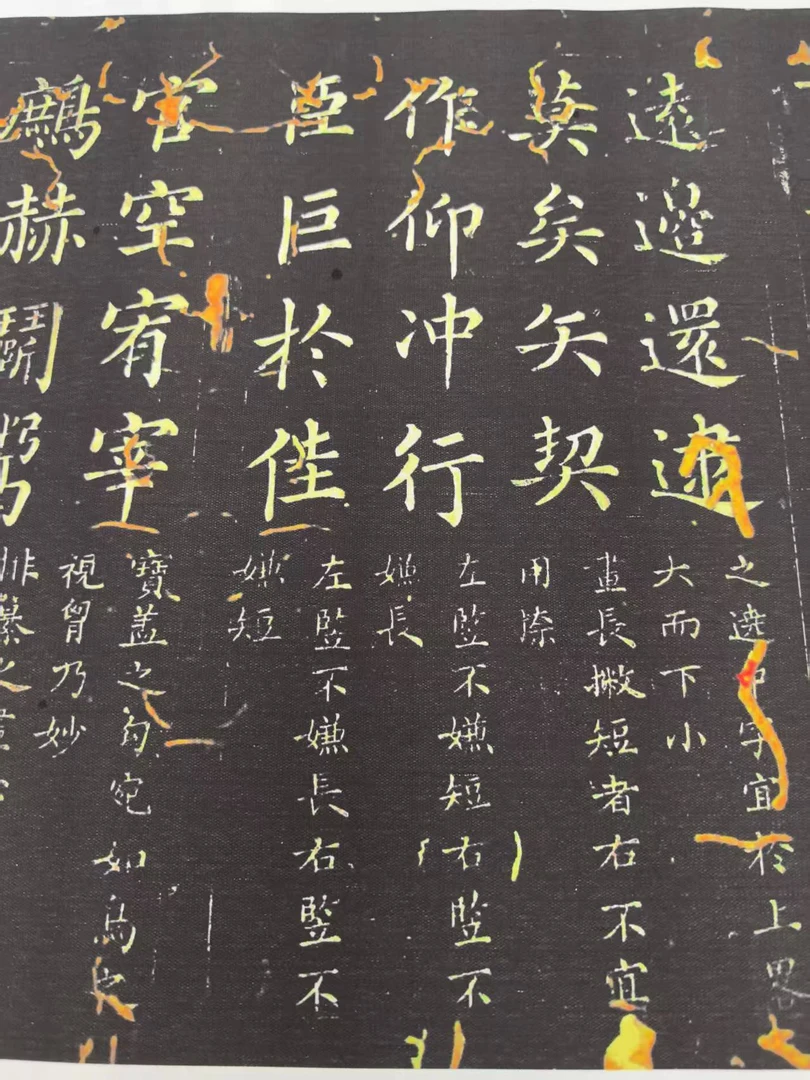 遠邊還逮
之邊中字宜於上畧
大而下小
莫矣矢契
畫長撇短者右不宜
用
作仰冲行
左竪不嫌短(右竪不
嫌長)
臣巨於佳
左竪不嫌長右竪不
嫌短
官空宥宰
寶蓋之勾宛如鳥之
視胷乃妙
鷓赫鬭